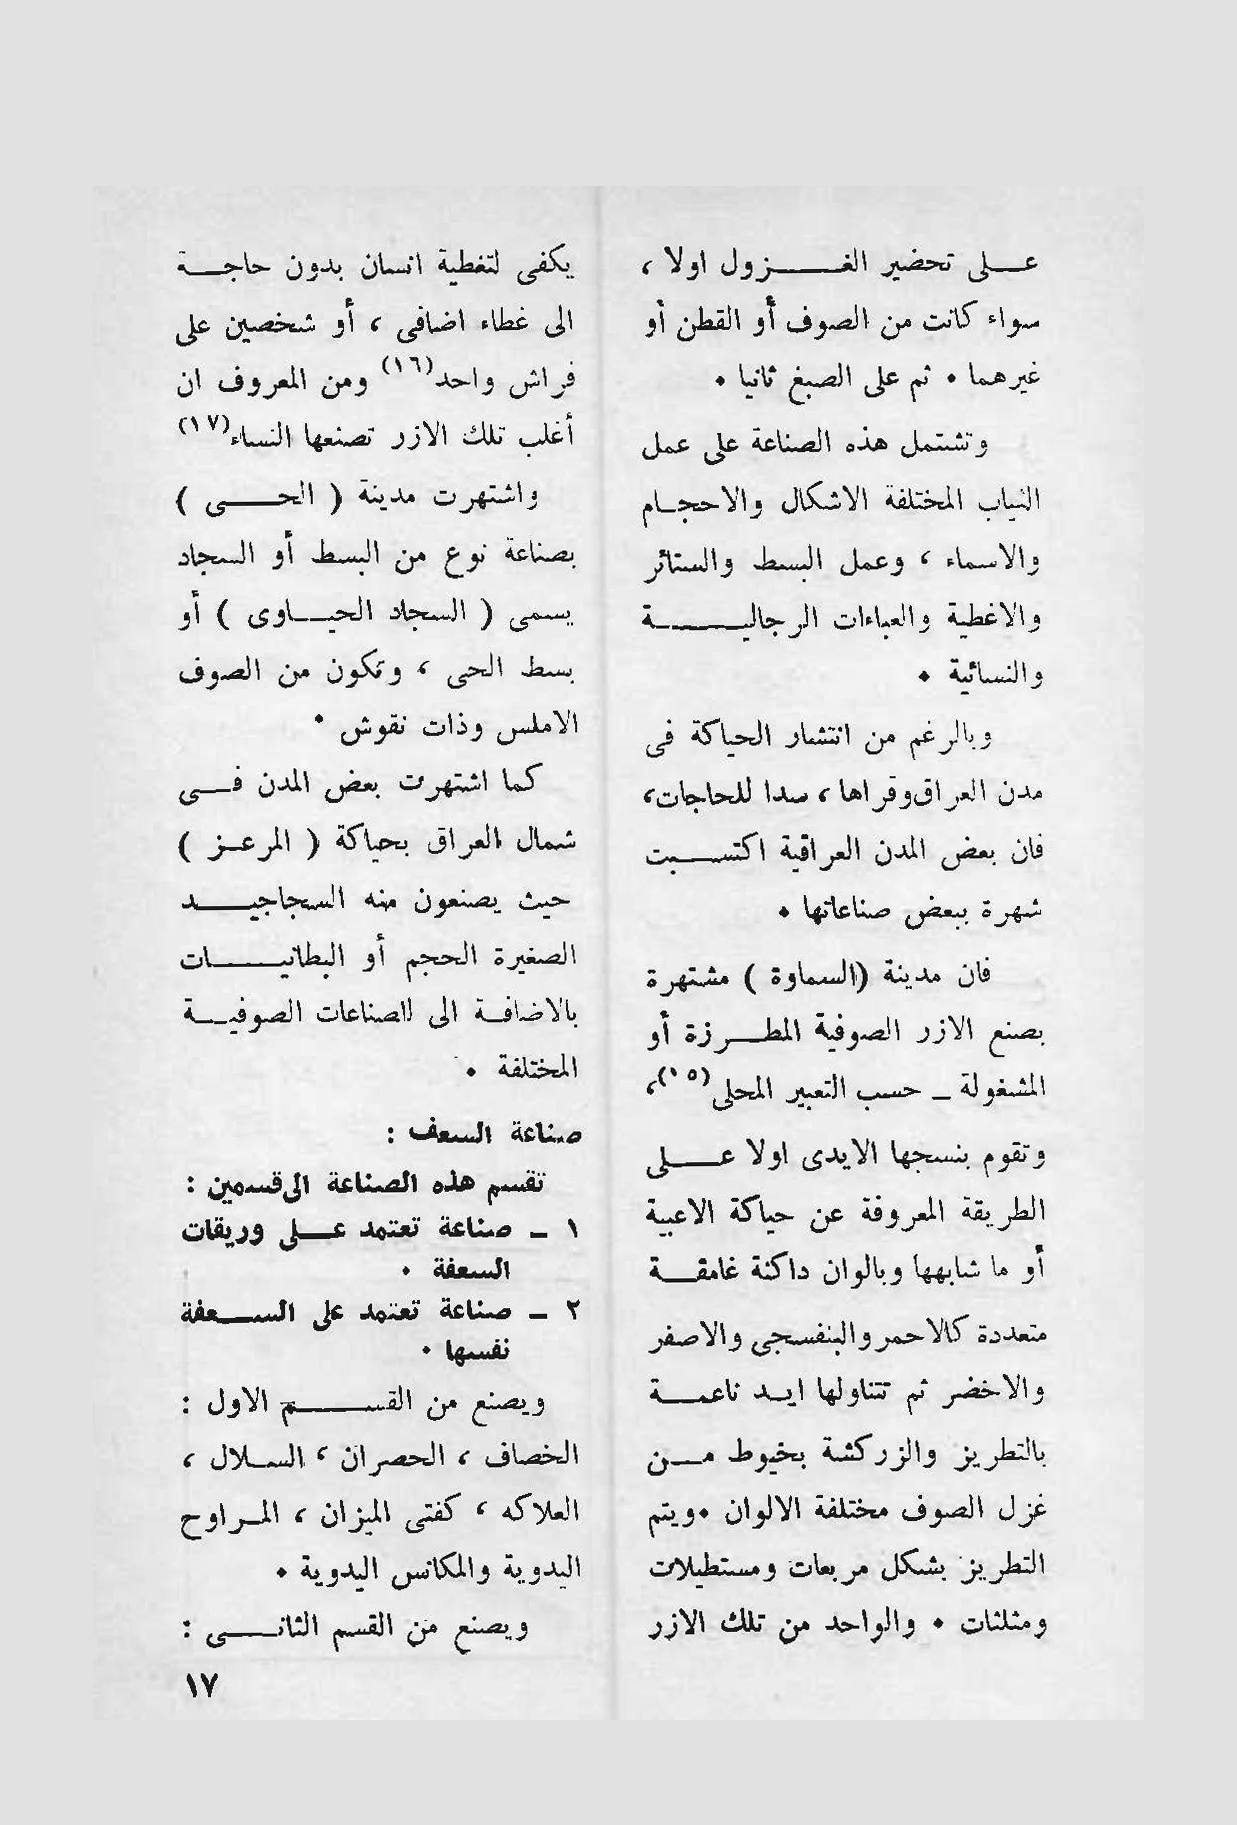 على تحضير الغزول اولا ،
سواء كانت من الصوف أو القطن أو
غيرهما . ثم على الصبغ ثانيا .
وتشتمل هذه الصناعة على عمل
الثياب المختلفة الاشكال والاحجام
والاسماء ، وعمل البسط والستائر
والاغطية والعباءات الرجالية
والنسائية .
وبالرغم من انتشار الحياكة فى
مدن العراق وقراها ، سدا للحاجات،
فان بعض المدن العراقية اكتسبت
شهرة ببعض صناعاتها .
فان مدينة (السماوة ) مشتهرة
بصنع الازر الصوفية المطرزة أو
المشغولة ــ حسب التعبير المحلى(١٥)،
وتقوم بنسجها الايدى اولا على
الطريقة المعروفة عن حياكة الاعبية
أو ما شابهها وبالوان داكنة غامقة
متعددة كالاحمر والبنفسجى والاصفر
والاخضر ثم تتناولها ايد ناعمة
بالتطريز والزركشة بخيوط من
غزل الصوف مختلفة الالوان .ويتم
التطريز بشكل مربعات ومستطيلات
ومثلثات . والواحد من تلك الازر
يكفى لتغطية انسان بدون حاجة
الى غطاء اضافى ، أو شخصين على
فراش واحد(١٦) ومن المعروف ان
أغلب تلك الازر تصنعها النساء(١٧)
واشتهرت مدينة ( الحى )
بصناعة نوع من البسط أو السجاد
يسمى ( السجاد الحياوى ) أو
بسط الحى ، وتكون من الصوف
الاملس وذات نقوش .
كما اشتهرت بعض المدن فى
شمال العراق بحياكة ( المرعز )
حيث يصنعون منه السجاجيد
الصغيرة الحجم أو البطانيات
بالاضافة الى الصناعات الصوفية
المختلفة .
صناعة السعف :
تقسم هذه الصناعة الى قسمين :
١ ــ صناعة تعتمد على وريقات
السعفة .
٢ ــ صناعة تعتمد على السعفة
نفسها .
ويصنع من القسم الاول :
الخصاف ، الحصران ، السلال ،
العلاكه ، كفتى الميزان ، المراوح
اليدوية والمكانس اليدوية .
ويصنع من القسم الثانى :
١٧